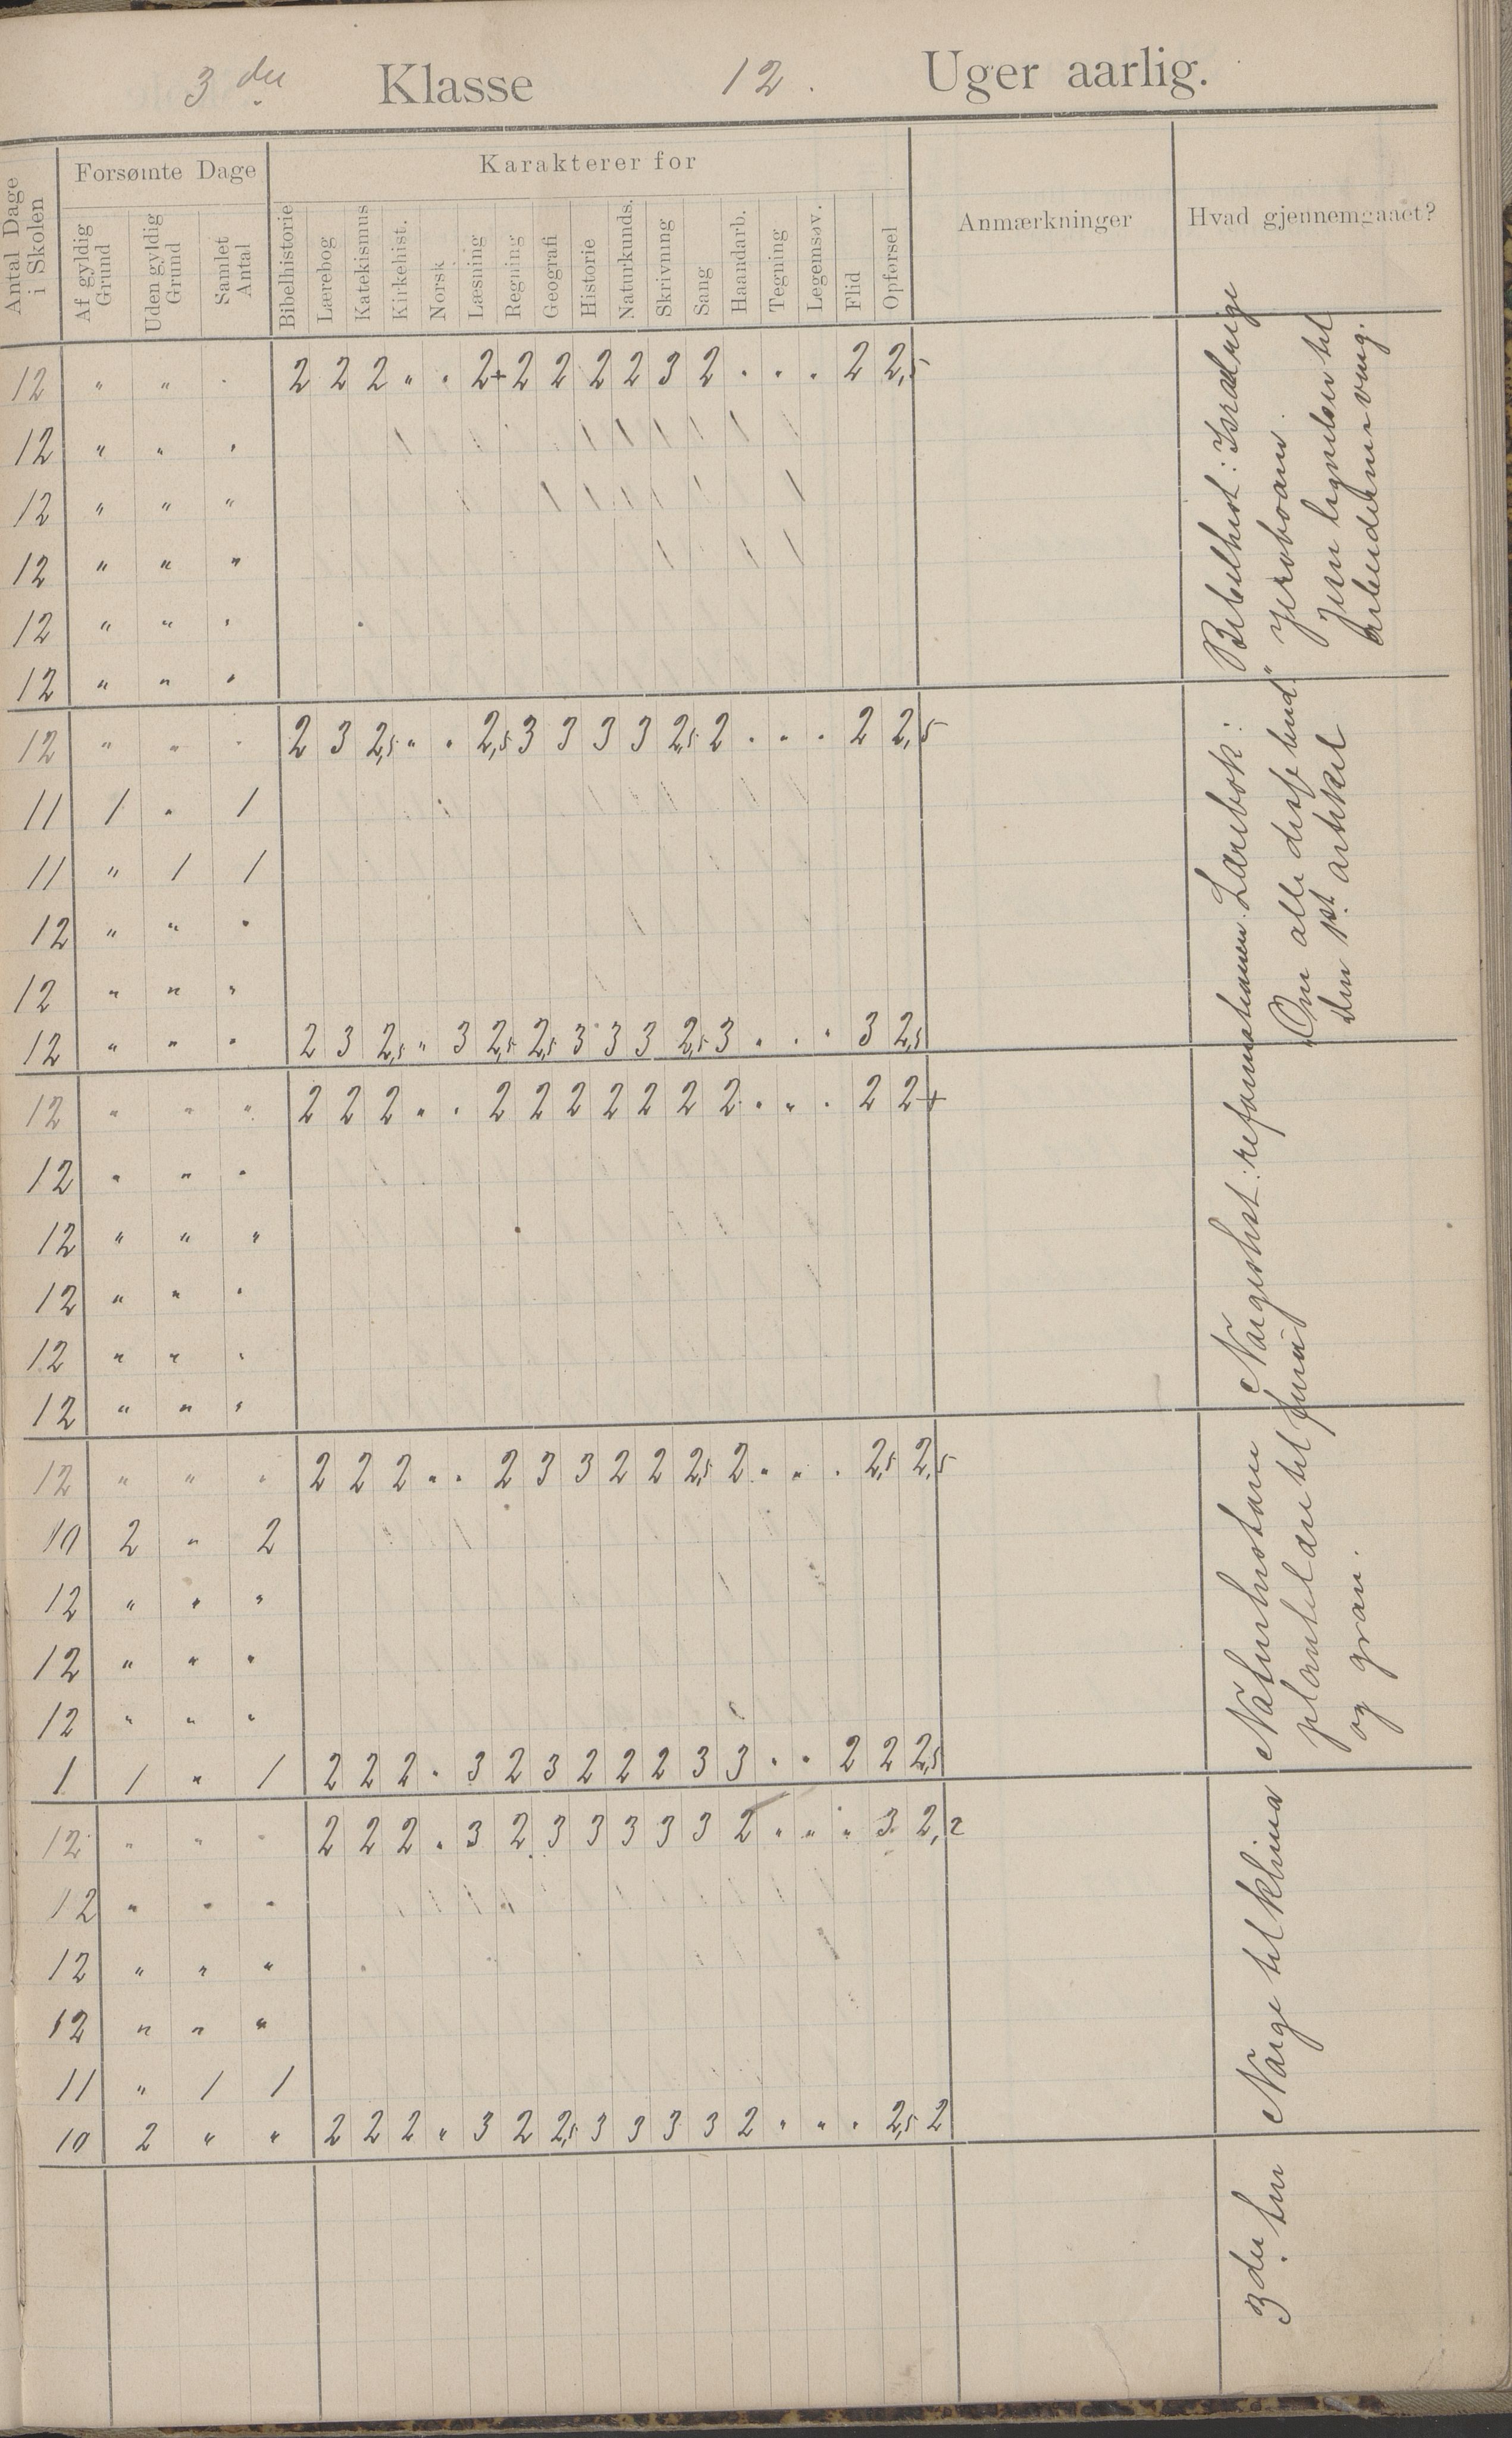 3die Klasse 12. Uger aarlig.
Antal Dage i Skolen
Forsømte Dage
Af gyldig Grund
Uden gyldig Grund
Samlet Antal
Karakterer for
Bibelhistorie
Lærebog
Katekismus
Kirkehist.
Norsk
Læsning
Regning
Geografi
Historie
Naturkunds.
Skrivning
Sang
Haandarb.
Tegning
Legemsøv.
Flid
Opførsel
Anmærkninger
Hvad gjennemgaaet?
12 " " " 2 2 2 " " 2+ 2 2 2 2 3 2 " " " 2 2,5
12 " " "
12 " " "
12 " " "
12 " " "
12 " " "
12 " " " 2 3 2,5 " " 2,5 3 3 3 3 2,5 2 " " " 2 2,5
11 1 " 1
11 " 1 1
12 " " "
12 " " "
12 " " " 2 3 2,5 " 3 2,5 2,5 3 3 3 2,5 3 " " " 3 2,5
12 " " " 2 2 2 " " 2 2 2 2 2 2 2 " " " 2 2+
12 " " "
12 " " "
12 " " "
12 " " "
12 " " "
12 " " " 2 2 2 " " 2 3 3 2 2 2,5 2 " " " 2,5 2,5
10 2 " 2
12 " " "
12 " " "
12 " " "
1 1 " 1 2 2 2 " 3 2 3 2 2 2 3 3 " " 2 2 2,5
12 " " " 2 2 2 " 3 2 3 3 3 3 3 2 " " " 3 2,2
12 " " "
12 " " "
12 " " "
11 " 1 1
10 2 " " 2 2 2 " 3 2 2,5 3 3 3 3 2 " " " 2,5 2
Bibelhist: Israels rige
Jeroboam
Jesu lignelser til
arbeiderne i ving.
Lærebok:
"Om alle disse bud"
den 1st artikel
Norgeshist: reformationen
Naturhistorie
planteløre til furu
og gran.
Norge til klima
3die